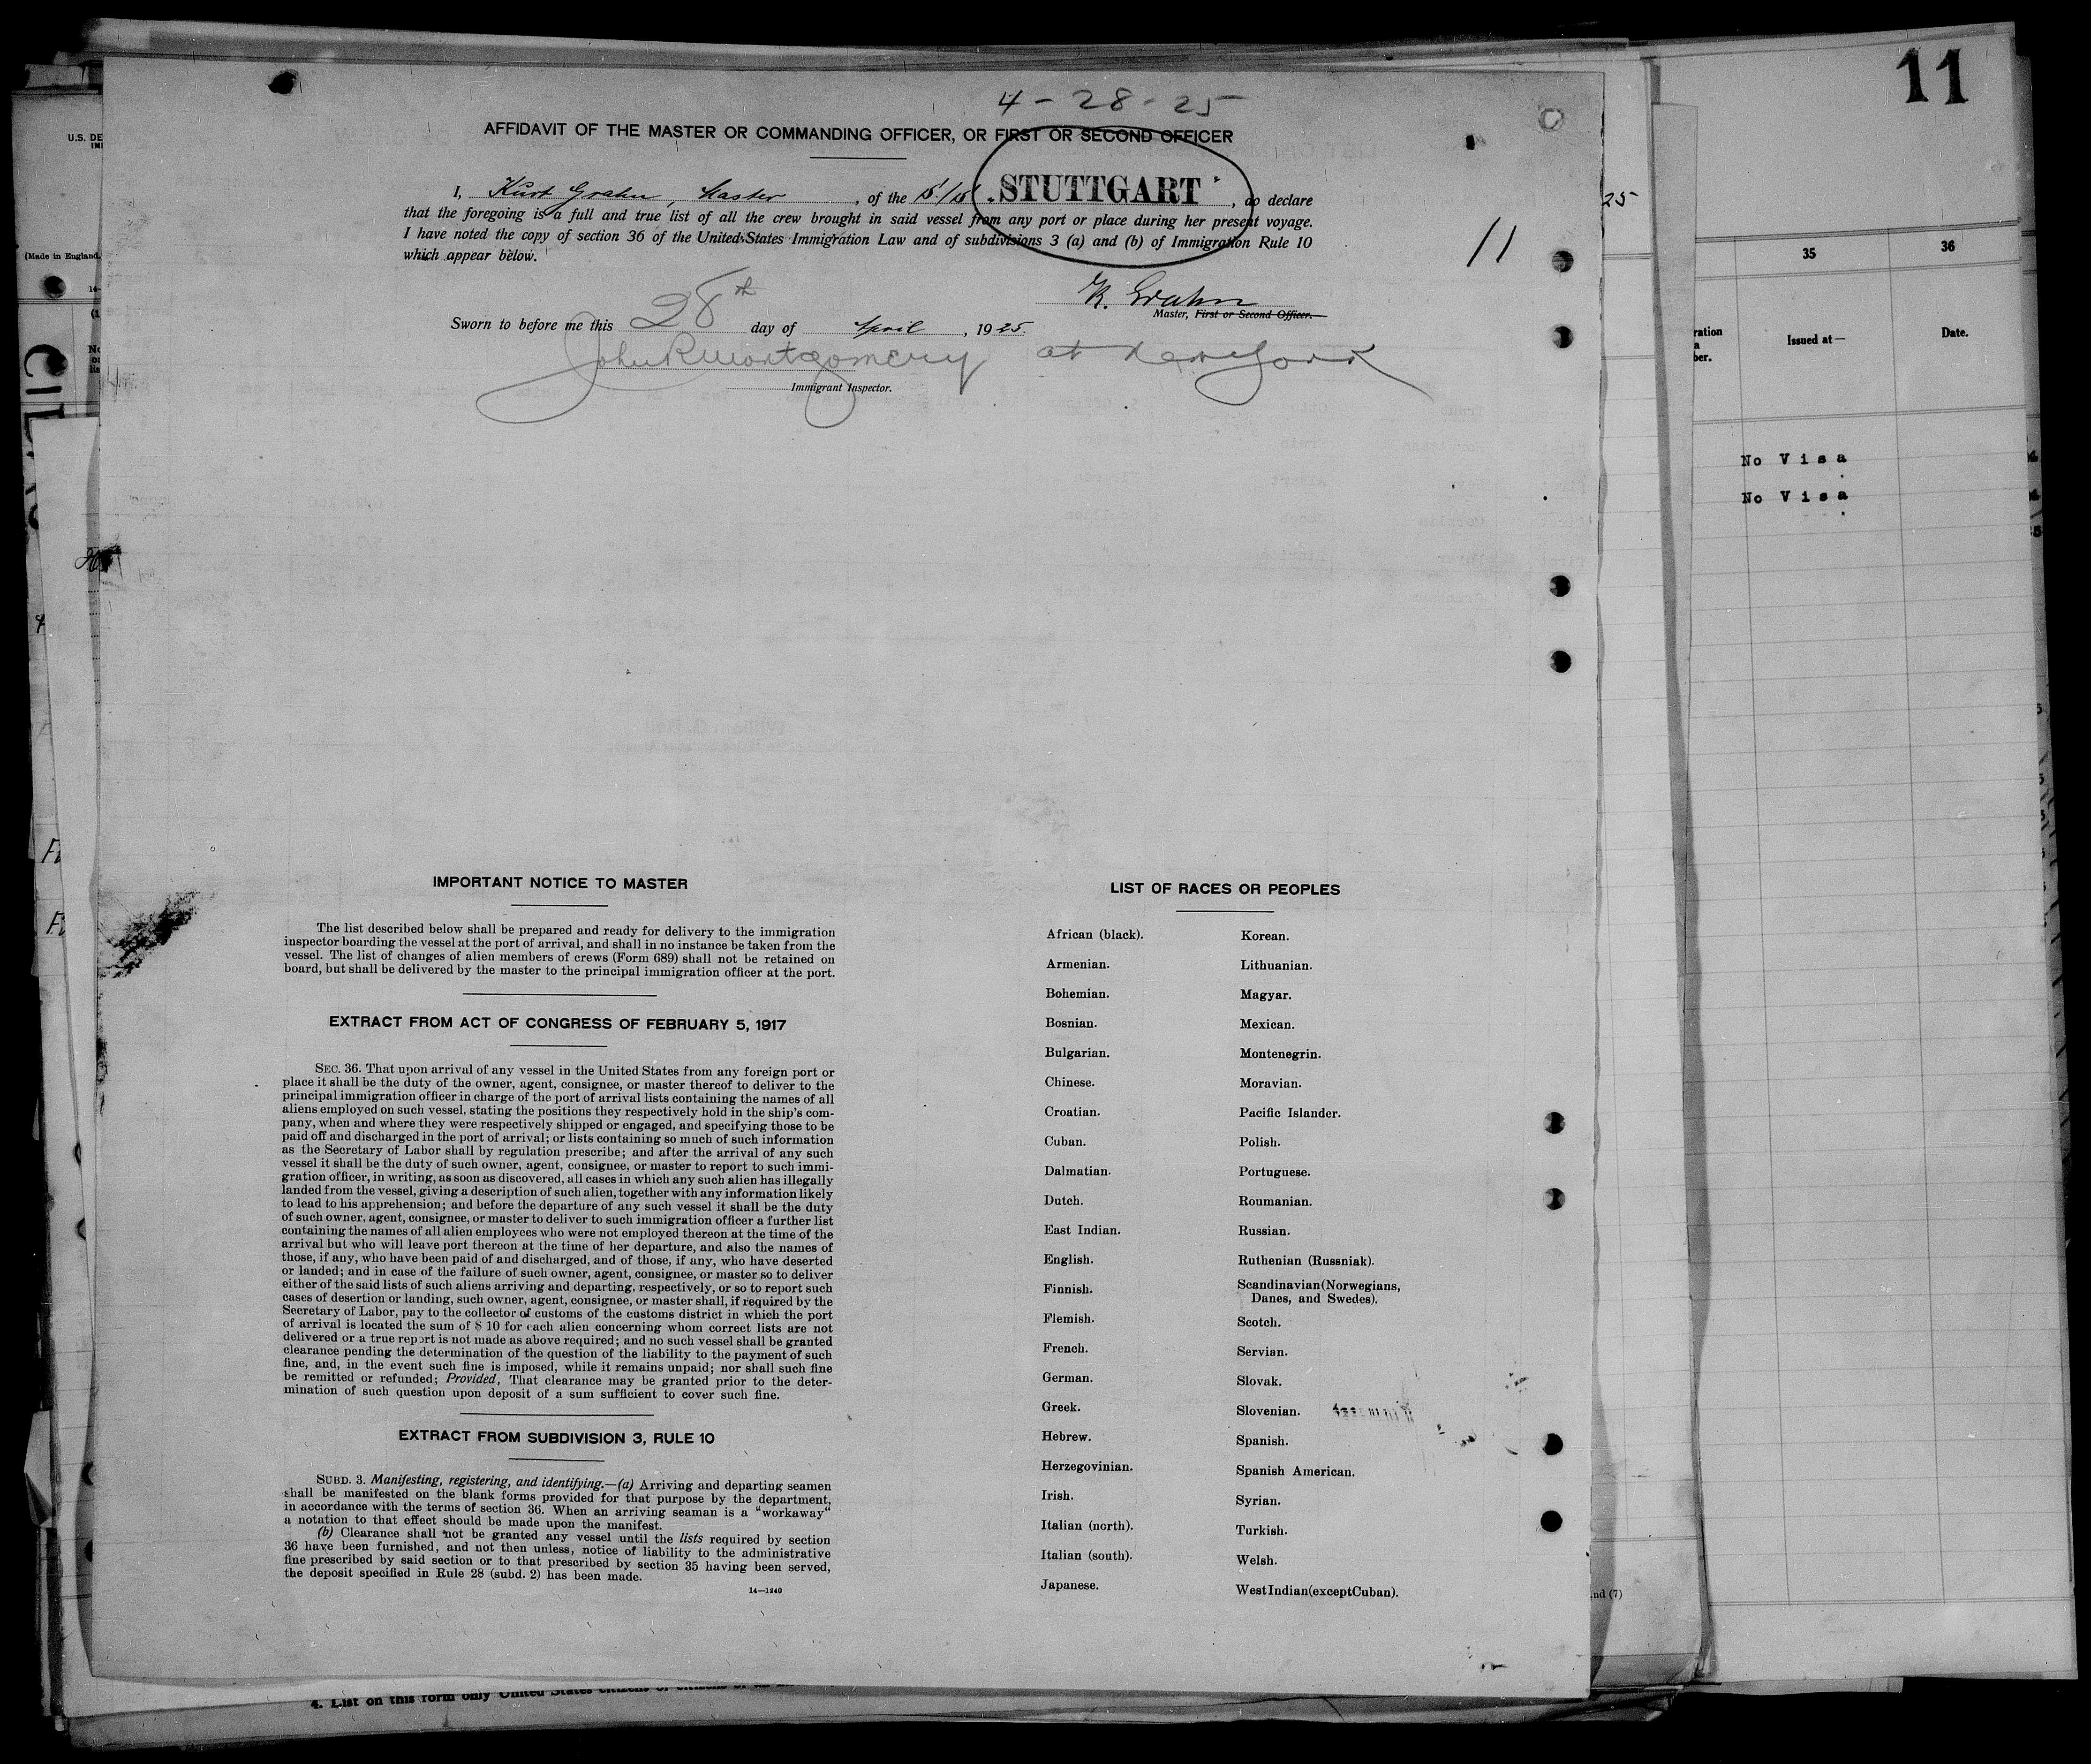 11
4 - 28 - 25
AFFIDAVIT OF THE MASTER OR COMMANDING OFFICER, OR FIRST OR SECOND OFFICER
I, Kurt Grahn, Master, of the STUTTGART, do declare
that the foregoing is a full and true list of all the crew brought in said vessel from any port or place during her present voyage.
I have noted the copy of section 36 of the United States Immigration Law and of subdivisions 3 (a) and (b) of Immigration Rule 10
which appear below.
11
K. Grahn
Master, First or Second Officer.
Sworn to before me this 28th day of April, 1925.
John R Montgomery at New York
Immigrant Inspector.
IMPORTANT NOTICE TO MASTER
The list described below shall be prepared and ready for delivery to the immigration
inspector boarding the vessel at the port of arrival, and shall in no instance be taken from the
vessel. The list of changes of alien members of crews (Form 689) shall not be retained on
board, but shall be delivered by the master to the principal immigration officer at the port.
EXTRACT FROM ACT OF CONGRESS OF FEBRUARY 5, 1917
SEC. 36. That upon arrival of any vessel in the United States from any foreign port or
place it shall be the duty of the owner, agent, consignee, or master thereof to deliver to the
principal immigration officer in charge of the port of arrival lists containing the names of all
aliens employed on such vessel, stating the positions they respectively hold in the ship's com-
pany, when and where they were respectively shipped or engaged, and specifying those to be
paid off and discharged in the port of arrival; or lists containing so much of such information
as the Secretary of Labor shall by regulation prescribe; and after the arrival of any such
vessel it shall be the duty of such owner, agent, consignee, or master to report to such immi-
gration officer, in writing, as soon as discovered, all cases in which any such alien has illegally
landed from the vessel, giving a description of such alien, together with any information likely
to lead to his apprehension; and before the departure of any such vessel it shall be the duty
of such owner, agent, consignee, or master to deliver to such immigration officer a further list
containing the names of all alien employees who were not employed thereon at the time of the
arrival but who will leave port thereon at the time of her departure, and also the names of
those, if any, who have been paid of and discharged, and of those, if any, who have deserted
or landed; and in case of the failure of such owner, agent, consignee, or master so to deliver
either of the said lists of such aliens arriving and departing, respectively, or so to report such
cases of desertion or landing, such owner, agent, consignee, or master shall, if required by the
Secretary of Labor, pay to the collector of customs of the customs district in which the port
of arrival is located the sum of $ 10 for each alien concerning whom correct lists are not
delivered or a true report is not made as above required; and no such vessel shall be granted
clearance pending the determination of the question of the liability to the payment of such
fine, and, in the event such fine is imposed, while it remains unpaid; nor shall such fine
be remitted or refunded; Provided, That clearance may be granted prior to the deter-
mination of such question upon deposit of a sum sufficient to cover such fine.
EXTRACT FROM SUBDIVISION 3, RULE 10
SUBD. 3. Manifesting, registering, and identifying.—(a) Arriving and departing seamen
shall be manifested on the blank forms provided for that purpose by the department,
in accordance with the terms of section 36. When an arriving seaman is a "workaway"
a notation to that effect should be made upon the manifest.
(b) Clearance shall not be granted any vessel until the lists required by section
36 have been furnished, and not then unless, notice of liability to the administrative
fine prescribed by said section or to that prescribed by section 35 having been served,
the deposit specified in Rule 28 (subd. 2) has been made.
14—1240
LIST OF RACES OR PEOPLES
African (black).
Armenian.
Bohemian.
Bosnian.
Bulgarian.
Chinese.
Croatian.
Cuban.
Dalmatian.
Dutch.
East Indian.
English.
Finnish.
Flemish.
French.
German.
Greek.
Hebrew.
Herzegovinian.
Irish.
Italian (north).
Italian (south).
Japanese.
Korean.
Lithuanian.
Magyar.
Mexican.
Montenegrin.
Moravian.
Pacific Islander.
Polish.
Portuguese.
Roumanian.
Russian.
Ruthenian (Russniak).
Scandinavian (Norwegians,
Danes, and Swedes).
Scotch.
Servian.
Slovak.
Slovenian.
Spanish.
Spanish American.
Syrian.
Turkish.
Welsh.
West Indian (except Cuban).
25
35
36
Issued at—
Date.
No Visa
No Visa
(Made in England.
4. List on this form only United States citizens